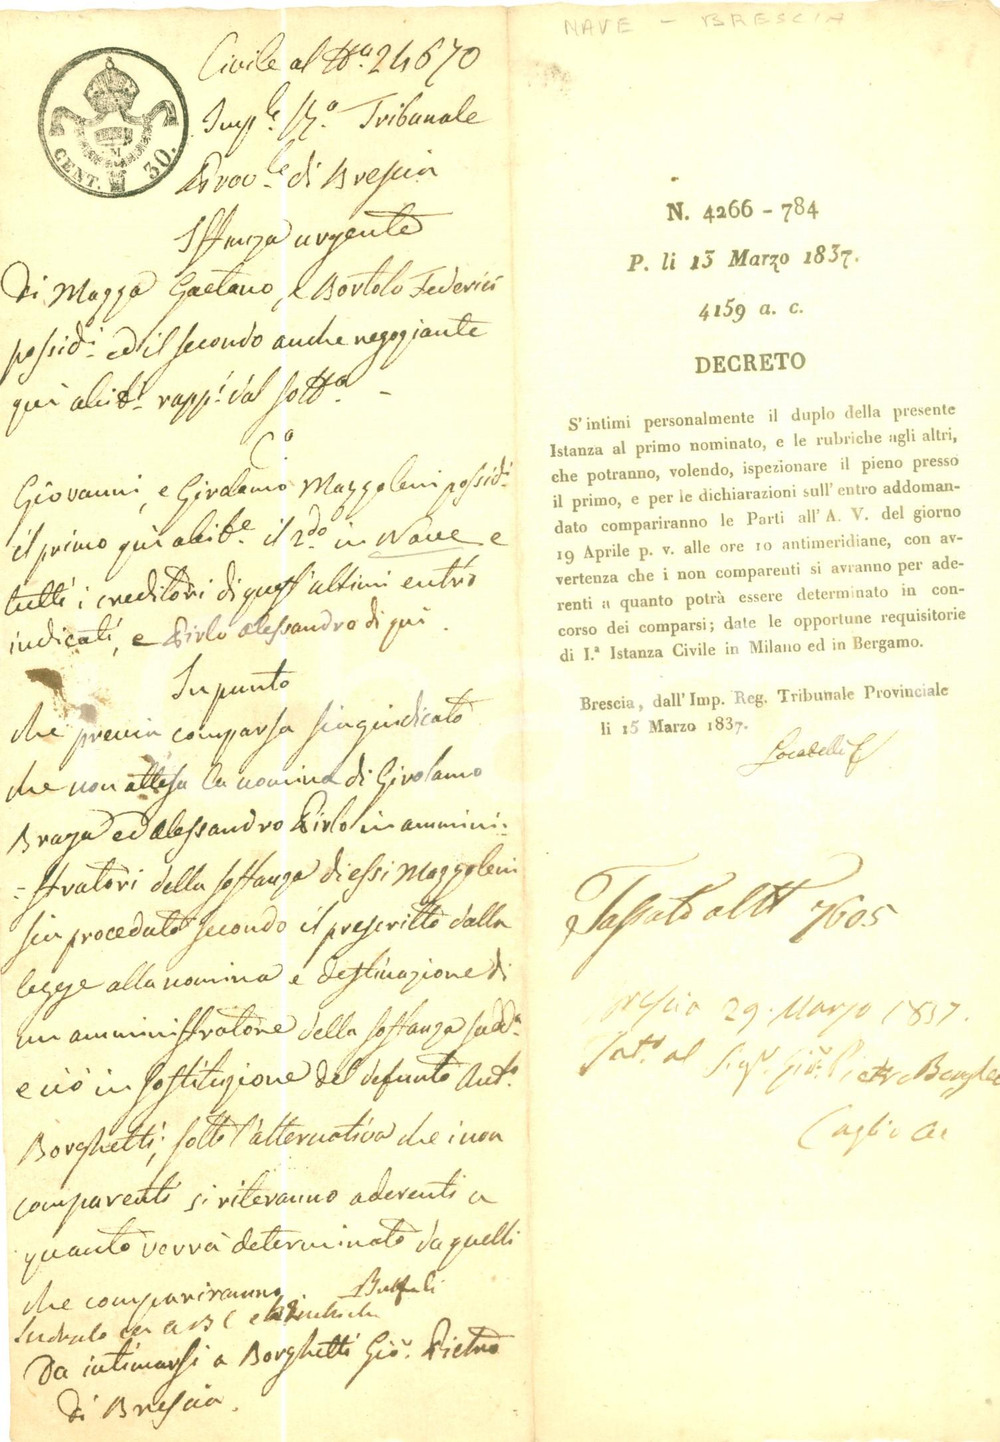 NAVE - BRESCIA
CENT. 30.
Civile al N.o 24670
Imp.le R.o Tribunale
Prov.le di Brescia
Istanza urgente
Di Mazza Gaetano, e Bortolo Federici
possid.i ed il secondo anche negoziante
qui abit.i rapp.i dal sott.o -
C.o
Giovanni, e Girolamo Mazzoleni possid.i
il primo qui abit.e il 2.do in Nave e
tutti i creditori di quest'ultimi entro
indicati, e Pirlo Alessandro di qui.
In punto
che previa comparsa sia giudicato
che non attesa la nomina di Girolamo
Braga ed Alessandro Pirlo in ammini-
-stratori della sostanza di essi Mazzoleni
sia proceduto secondo il prescritto dalla
legge alla nomina e destinazione di
un amministratore della sostanza sudd.a
e ciò in sostituzione del defunto Ant.o
Borghetti; sotto l'alternativa che i non
comparenti si riteranno aderenti a
quanto verrà determinato da quelli
che compariranno
A B C
Da intimarsi a Borghetti Gio. Pietro
di Brescia.
N. 4266 - 784
P. li 13 Marzo 1837.
4159 a. c.
DECRETO
S'intimi personalmente il duplo della presente
Istanza al primo nominato, e le rubriche agli altri,
che potranno, volendo, ispezionare il pieno presso
il primo, e per le dichiarazioni sull'entro addoman-
dato compariranno le Parti all'A. V. del giorno
19 Aprile p. v. alle ore 10 antimeridiane, con av-
vertenza che i non comparenti si avranno per ade-
renti a quanto potrà essere determinato in con-
corso dei comparsi; date le opportune requisitorie
di I.ª Istanza Civile in Milano ed in Bergamo.
Brescia, dall'Imp. Reg. Tribunale Provinciale
li 15 Marzo 1837.
Locatelli
Tassato al N 7605
Brescia 29. Marzo 1837.
al Sig.r Gio. Pietro